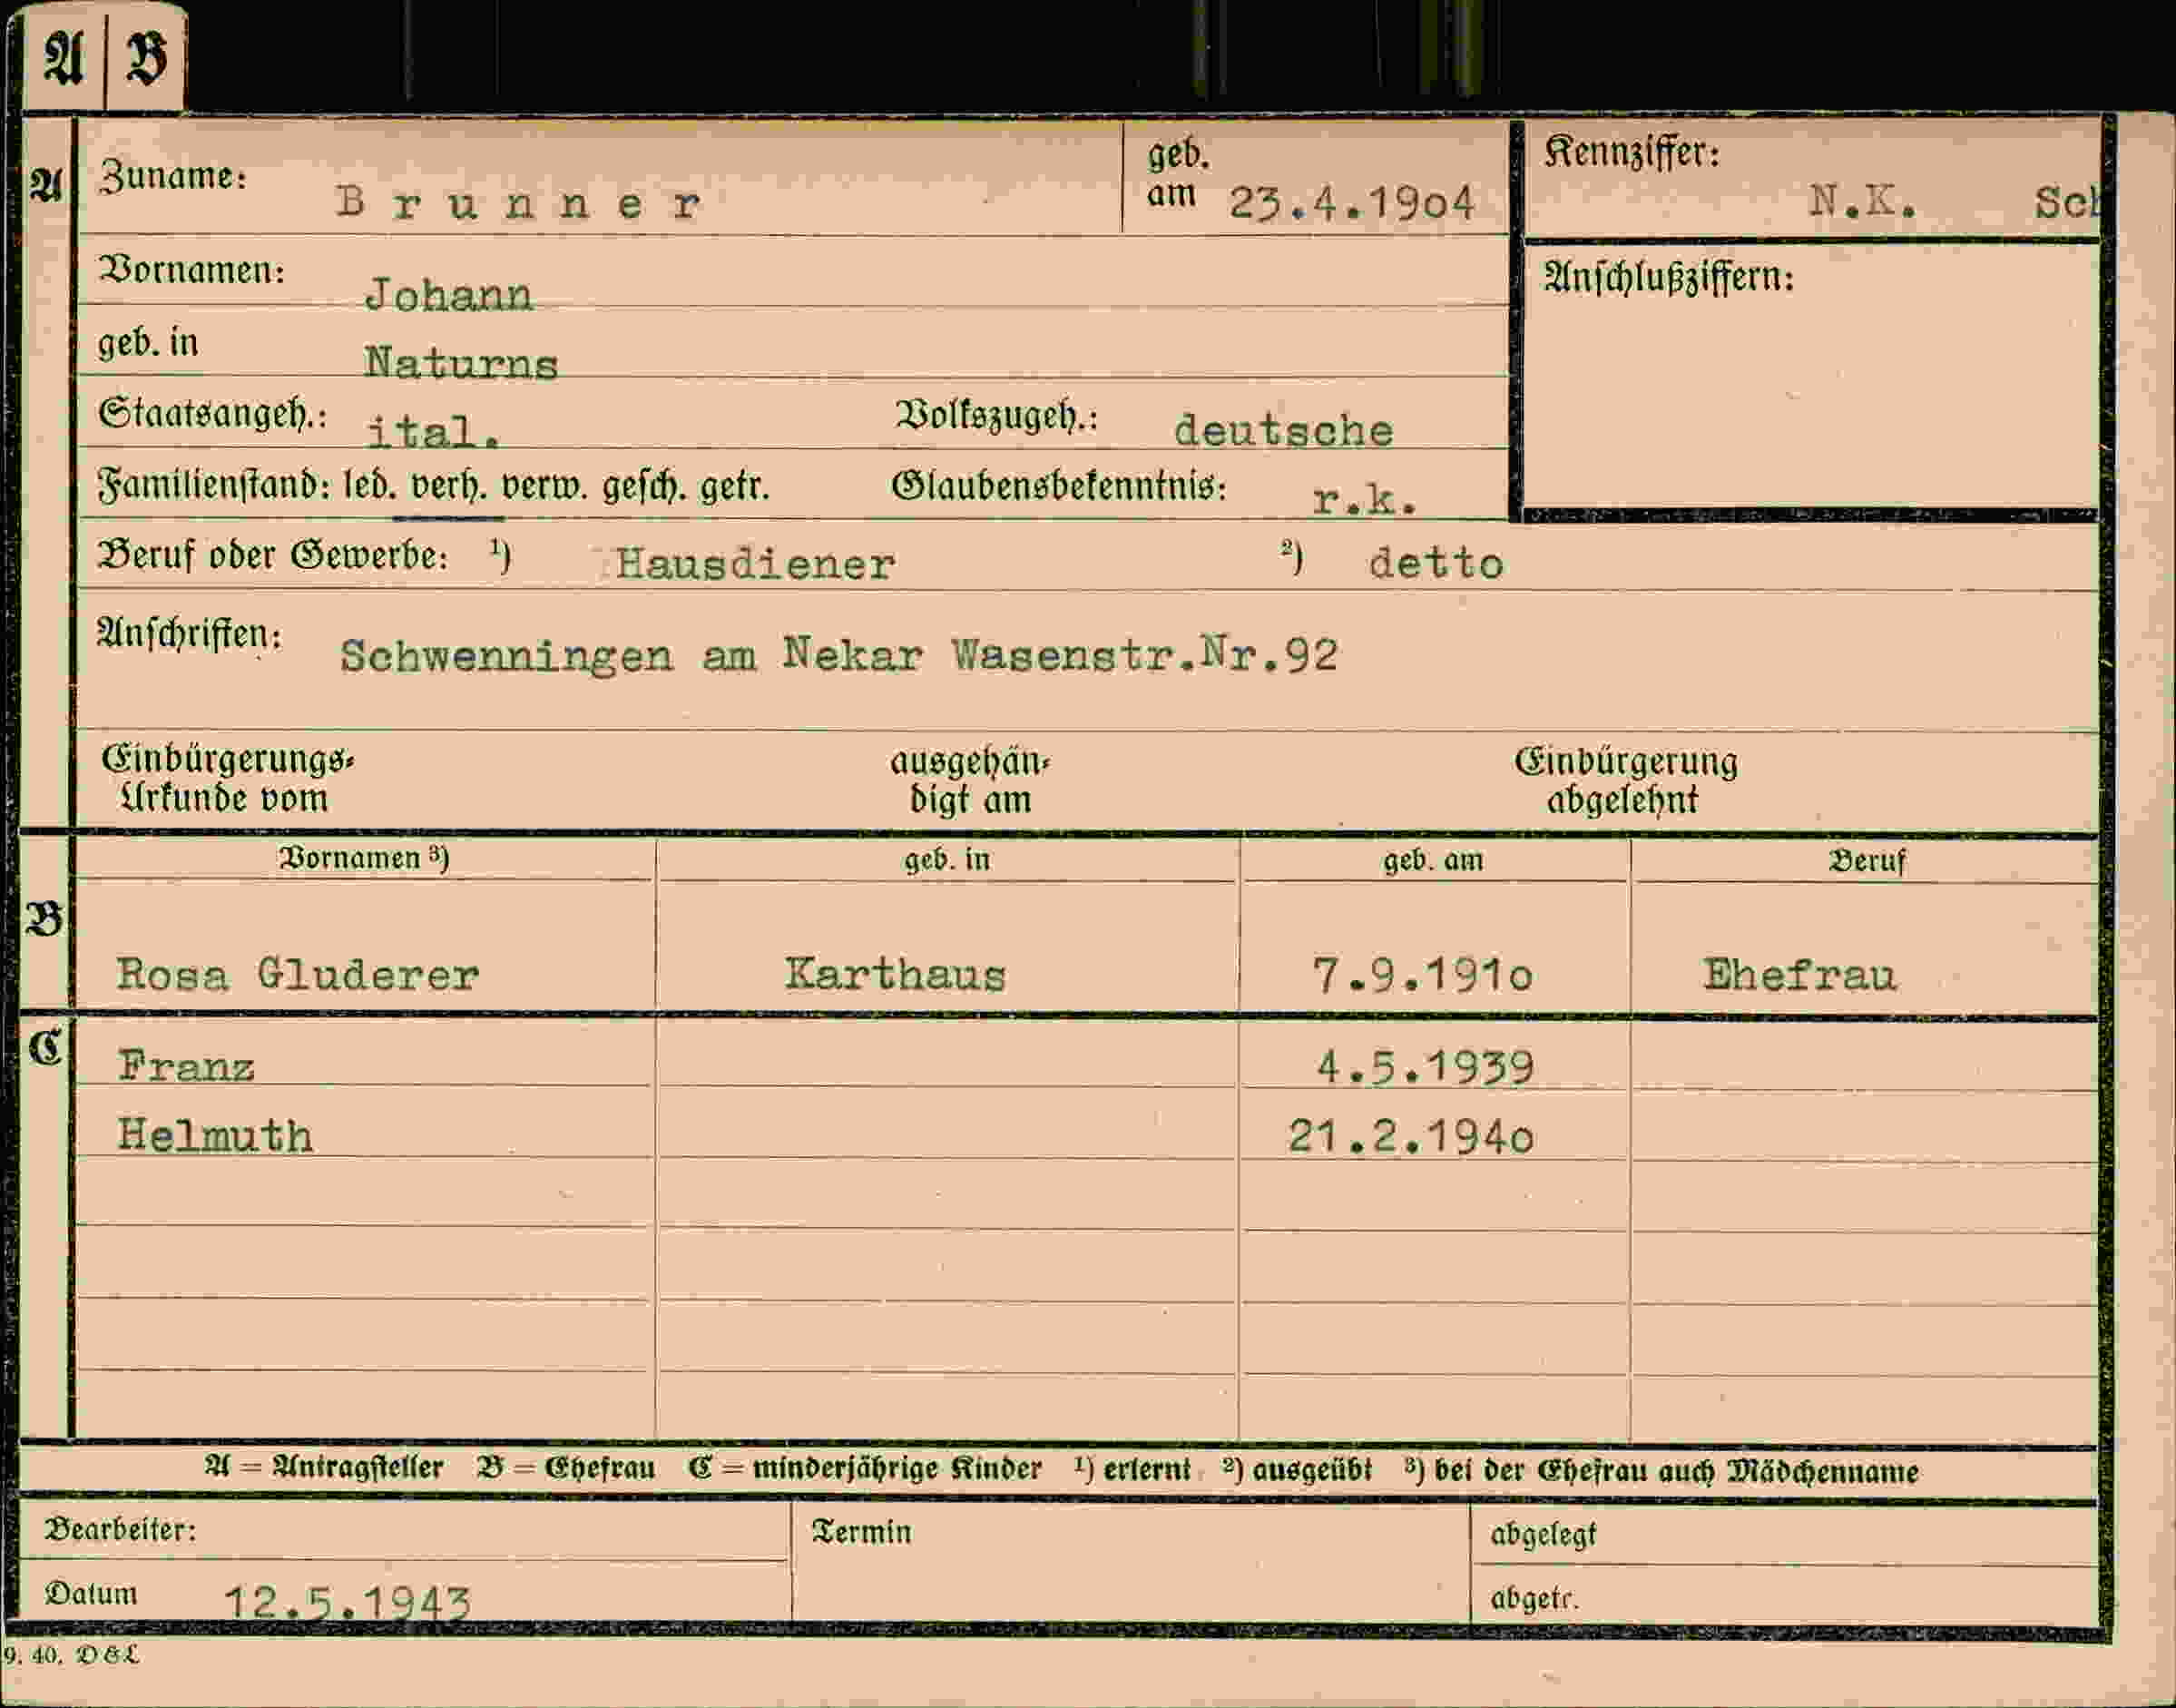 A B
A Zuname: Brunner geb. am 23.4.1904 Kennziffer: N.K. Sch
Vornamen: Johann Anschlußziffern:
geb. in Naturns
Staatsangeh.: ital. Volkszugeh.: deutsche
Familienstand: led. verh. verw. gesch. getr. Glaubensbekenntnis: r.k.
Beruf oder Gewerbe: 1) Hausdiener 2) detto
Anschriften: Schwenningen am Nekar Wasenstr.Nr.92
Einbürgerungs- ausgehän- Einbürgerung
Urkunde vom digt am abgelehnt
Vornamen 3) geb. in geb. am Beruf
B
Rosa Gluderer Karthaus 7.9.1910 Ehefrau
C Franz 4.5.1939
Helmuth 21.2.1940
A = Antragsteller B = Ehefrau C = minderjährige Kinder 1) erlernt 2) ausgeübt 3) bei der Ehefrau auch Mädchenname
Bearbeiter: Termin abgelegt
Datum 12.5.1943 abgetr.
9. 40. D&L